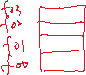 f03
f02
f01
f00